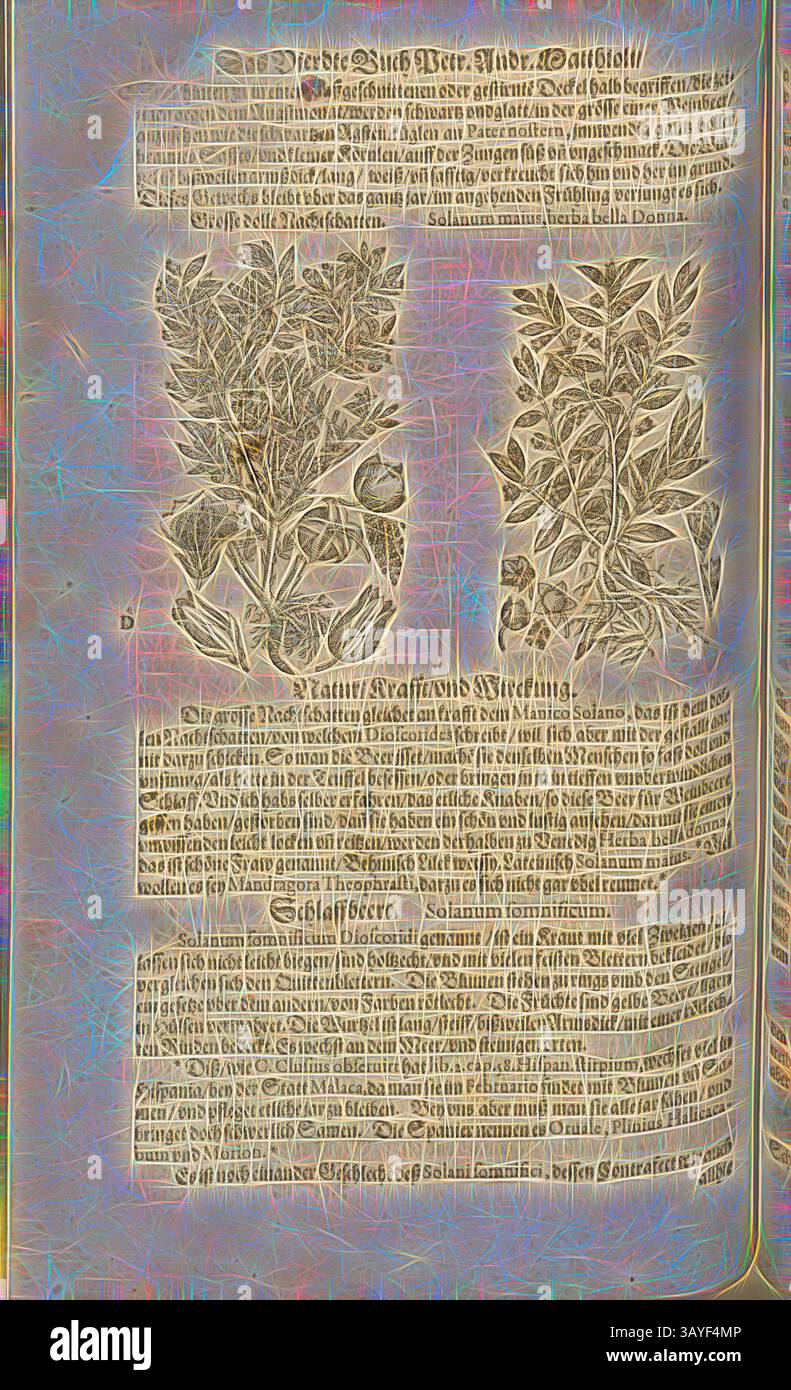 Vierdte Buch Petr. Andr. Matthioli/
geschnittenen oder gestirnte Deckel halb begriffen/die zei-
werden schwartz vnd glatt/in der grösse einer Weinbeer/
schwartzen Agsten Paternostern, inwendig
kleiner Körnlen/auff der Zungen süß vñ vngeschmack. Die Wur-
armßdick/lang/ weiß/vñ safftig/verkreucht sich hin vnd her im grund.
Dieses Gewechs bleibt vber das gantz jar/im angehenden Frühling verjungt es sich.
Grosse dolle Nachtschatten. Solanum maius, herba bella Donna.
D
Natur/Krafft/vnd Wirckung.
Die grosse Nachtschatten gleichet an krafft dem Manico Solano, das ist dem dol-
len Nachtschatten/von welchem Dioscorides schreibt/wil sich aber mit der gestalt gar
nit darzu schicken. So man die Beer isset/machẽ sie denselben Menschen so fast doll vnd
vnsinnig/als hette in der Teuffel besessen/oder bringen jn in tieffen vnvberwindlichen
Schlaff. Vnd ich habs selber erfahren/das etliche Knaben/so diese Beer für Weinbeere
gessen haben/gestorben sind/dañ sie haben ein schön vnd lustig ansehen/darmit sie einen
vnwissenden leicht locken vñ reitzen/werden derhalben zu Venedig Herba bella donna,
das ist schöne Fraw genant/Behmisch Lateinisch Solanum maius. * Viel
wollen es sey Mandragora Theophrasti, darzu es sich nicht gar vbel reimet.*
Schlaffbeere. Solanum somnificum.
Solanum somnificum Dioscoridi genannt/ist ein Kraut mit viel Zweigen/die
lassen sich nicht leicht biegen/sind holtzecht/vnd mit vielen feisten Blettern bekleidet/die
vergleichen sich den Quittenblettern. Die Blumen stehen zu rings vmb den Stengel/
ein gesetz vber dem andern/von Farben rötlecht. Die Früchte sind gelbe Beer/ligen
in Hülsen verwahret. Die Wurtzel ist lang/steiff/bißweilen Armsdick/mit einer rötlech-
ten Rinden bedeckt. Es wechst an dem Meer/vnd steinigen orten.
* Diß/wie C. Clusius obseruirt hat lib. 2. cap. 58. Hispan. stirpium, wechset viel in
Hispania/bey der Statt Malaca, da man sie im Februario findet mit Blumen vñ Sa-
men/vnd pfleget etliche jar zu bleiben. Bey vns aber muß man sie alle jar sähen/vnd
bringet doch schwerlich Samen. Die Spanier nennen es Oruale, Plinius Halicaca-
bum vnd Morion. *
Es ist noch ein ander Geschlecht deß Solani somnifici, dessen Contrafect